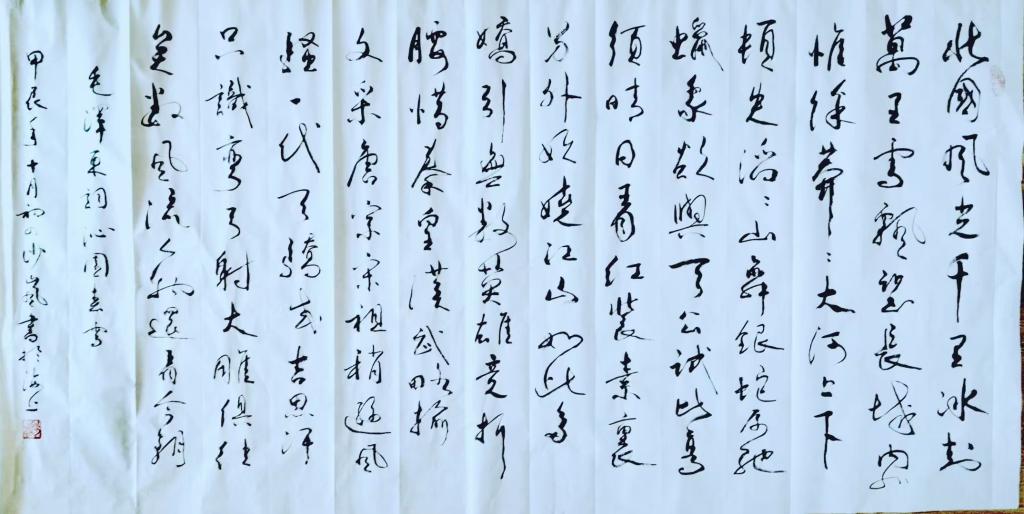 北國風光千里冰封
萬里雪飄望長城內外
惟餘莽〻大河上下
頓失滔〻山舞銀蛇原馳
蠟象欲與天公試比高
須晴日看紅裝素裹
分外妖嬈江山如此多
嬌引無數英雄競折
腰惜秦皇漢武略輸
文采唐宗宋祖稍遜風
騷一代天驕成吉思汗
只識彎弓射大雕俱往
矣數風流人物還看今朝
毛澤東詞沁園春雪
甲辰年十月初四沙嵐書於海上